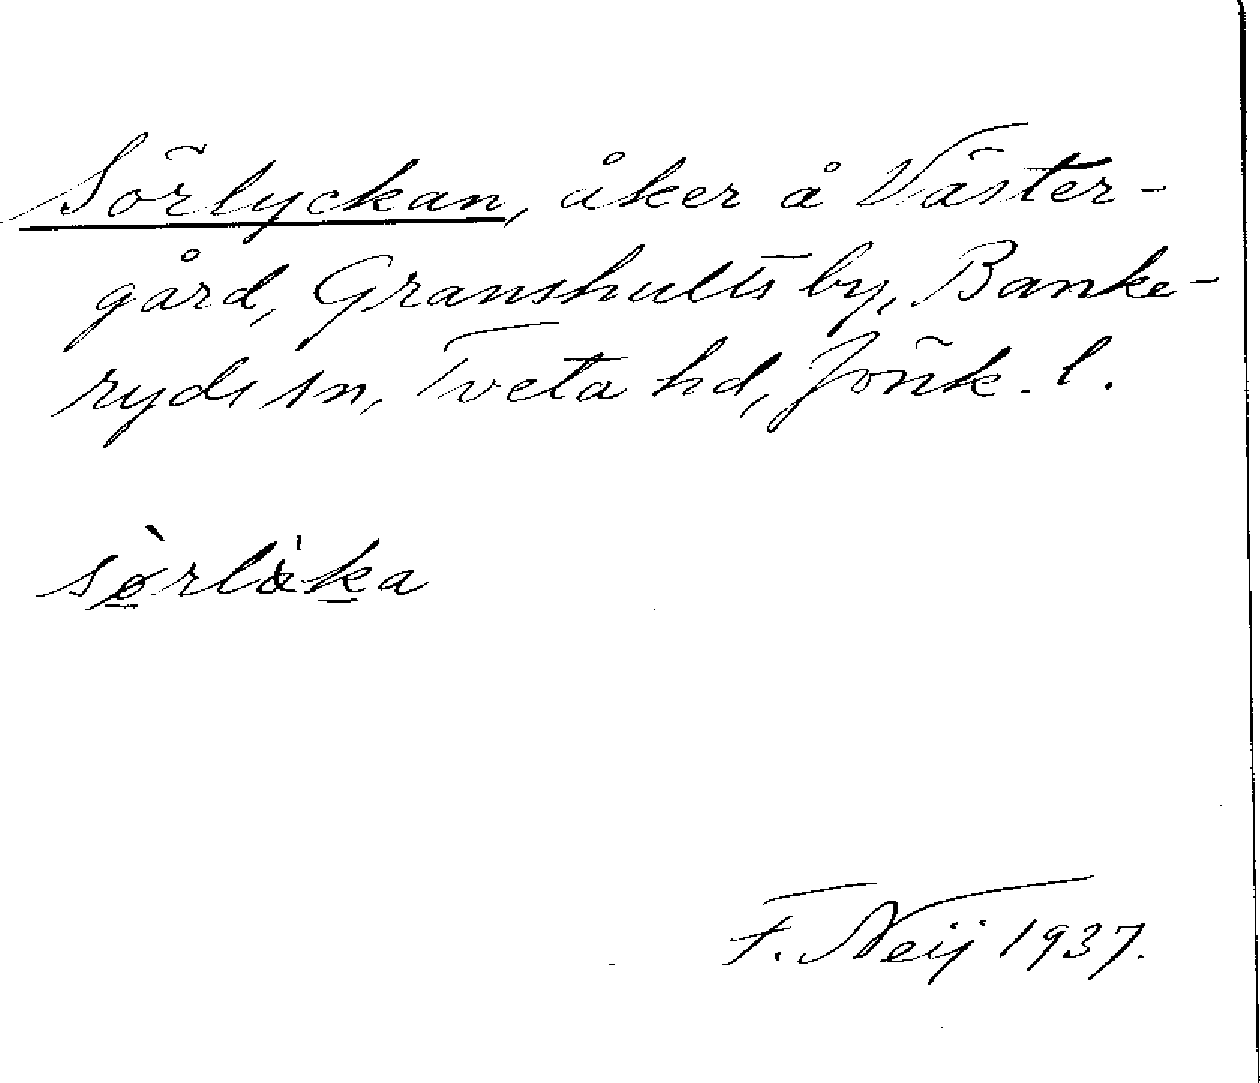 Sörlyckan, åker å Väster-
gård, Granshults by, Banke-
ryds sn, Tveta hd, Jönk. l.
F. Neij 1937.